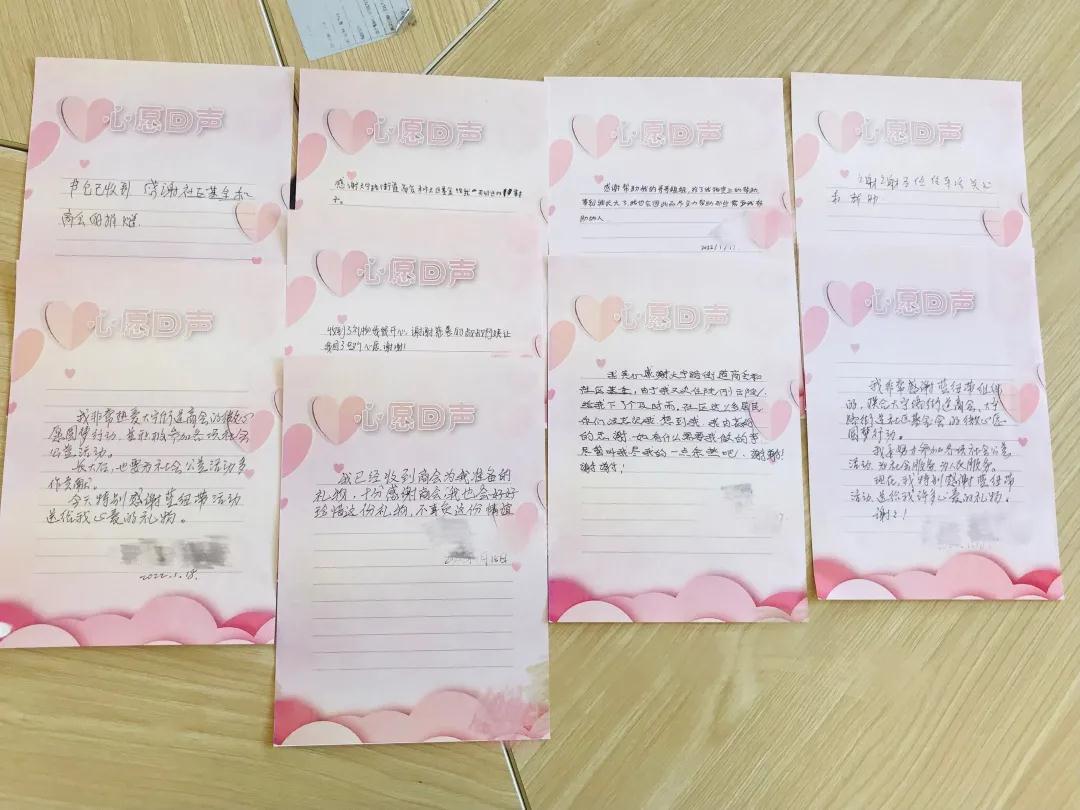 心愿回声
书包已收到 感谢社区基金和
商会的推

心愿回声
感谢大宁路街道商会和社区基金给我

心愿回声
感谢帮助我的哥哥姐姐,除了物质上的帮助,
等到我长大了,我也会尽力帮助那些需要我帮
助的人
2022/1/17

心愿回声
谢谢各位
和帮助

心愿回声
收到了礼物我很开心,谢谢
我圆了我的心愿,谢谢!

心愿回声
我非常热爱大宁街道商会的微心
愿圆梦行动,并积极参加各项社会
公益活动。
长大后,也要为社会公益活动多
作贡献。
今天特别感谢蓝纽带活动
送给我心爱的礼物。
2022.1.18.

心愿回声
我已经收到商会为我准备的
礼物,十分感谢商会,我也会好好
珍惜这份礼物,不辜负这份情谊
月16日

心愿回声
感谢大宁路街道商会和
社区基金,由于我又次住院(刚出院),
给我下了个及时雨,社区这么多居民
你们没忘记我,想到我,我由衷
的感谢,如有什么需要我做的事
尽管叫我尽我的一点余热吧!谢谢!
谢谢!

心愿回声
我非常感谢蓝纽带伙伴
的,联合大宁路街道商会,大宁
路街道社区基金会的微心愿
圆梦行动。
我要努力参加各项社会公益
活动,为社会服务,为人民服务。
现在,我特别感谢蓝纽带
活动送给我许多心爱的礼物。
谢谢!